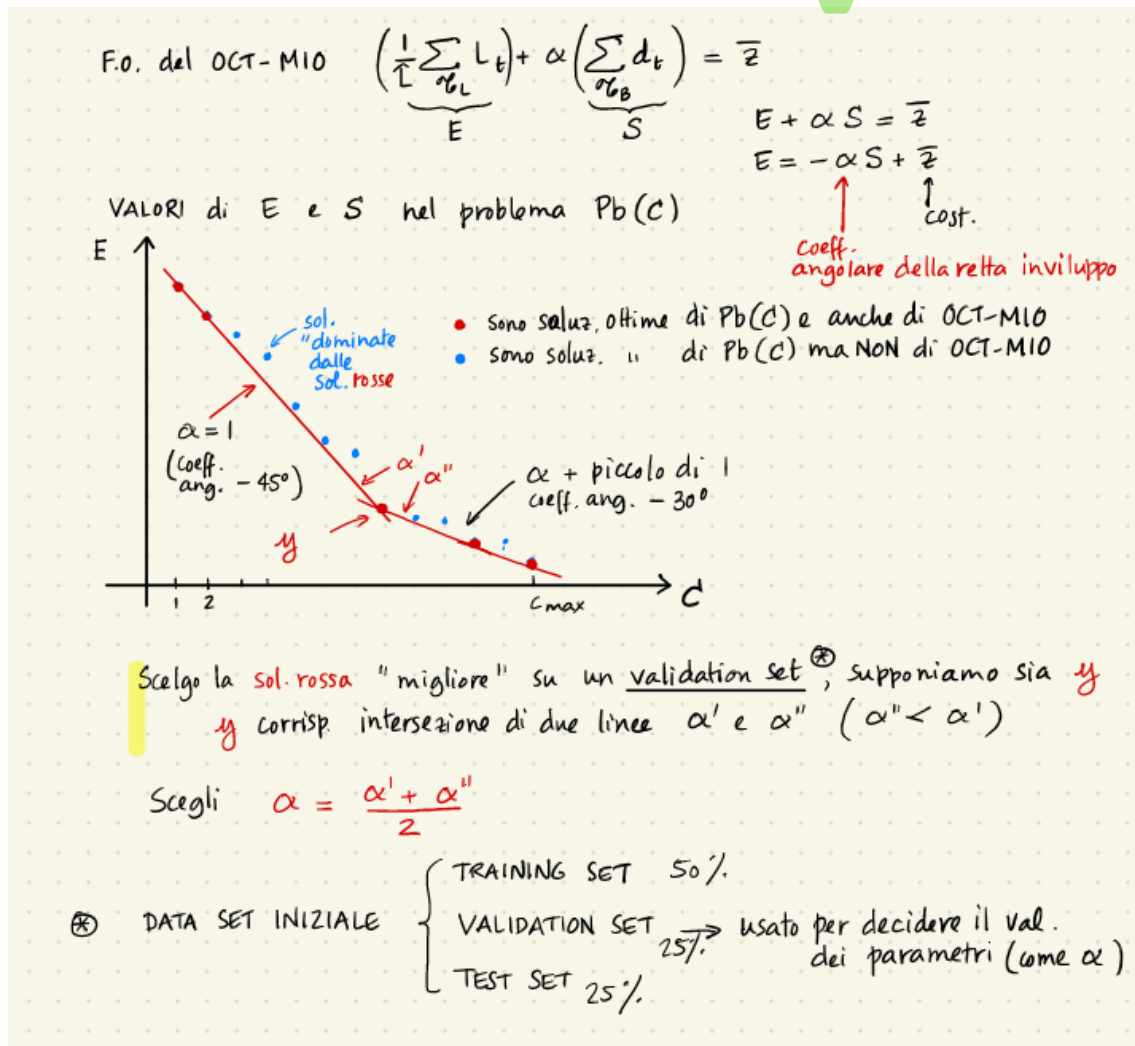 F.o. del OCT-MIO (1/L̂ ∑_τL L_t) + α(∑_τB d_t) = z̄
E S
E + α S = z̄
E = - α S + z̄
cost.
coeff.
angolare della retta inviluppo
VALORI di E e S nel problema Pb(C)
E
sol.
"dominate
dalle
sol. rosse
• sono soluz. ottime di Pb(C) e anche di OCT-MIO
• sono soluz. " di Pb(C) ma NON di OCT-MIO
α = 1
(coeff.
ang. - 45°)
α'
α"
α + piccolo di 1
coeff. ang. - 30°
y
1 2 Cmax C
Scelgo la sol. rossa "migliore" su un validation set ⊛, supponiamo sia y
y corrisp. intersezione di due linee α' e α" (α" < α')
Scegli α = (α' + α")/2
TRAINING SET 50%
⊛ DATA SET INIZIALE { VALIDATION SET 25% → usato per decidere il val.
dei parametri (come α)
TEST SET 25%